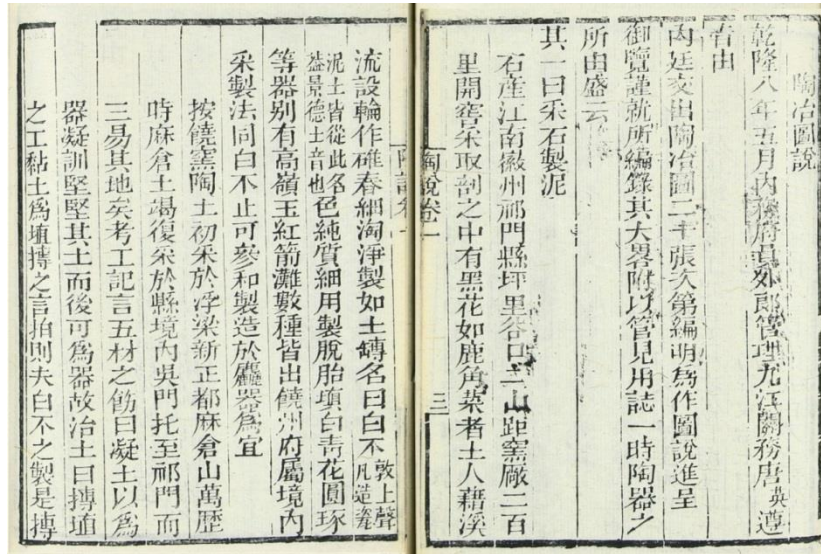 陶冶圖說
乾隆八年五月內務府員外郎管理九江關務唐英遵
旨由
內廷交出陶冶圖二十張次第編明爲作圖說進呈
御覽謹就所編錄其大畧附以管見用誌一時陶器之
所由盛云
其一曰采石製泥
石產江南徽州祁門縣坪里谷口二山距窰廠二百
里開窖采取剖之中有黑花如鹿角菜者土人藉溪
陶說卷一
三
流設輪作碓舂細淘淨製如土鏄名曰白不敦上聲凡造瓷
泥土皆從此名葢景德土音也色純質細用製脫胎塡白靑花圓琢
等器別有高嶺玉紅箭灘數種皆出饒州府屬境內
采製法同白不止可參和製造於麤器爲宜
按饒窯陶土初采於浮梁新正都麻倉山萬歷
時麻倉土竭復采於縣境內吳門托至祁門而
三易其地矣考工記言五材之飭曰凝土以爲
器凝訓堅堅其土而後可爲器故治土曰摶埴
之工黏土爲埴摶之言拍則夫白不之製是摶